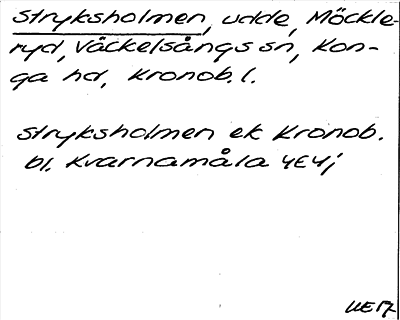 Stryksholmen, udde, Möckle-
ryd, Väckelsångs sn, Kon-
ga hd, Kronob. l.
Stryksholmen ek Kronob.
bl. Kvarnamåla 4E4j